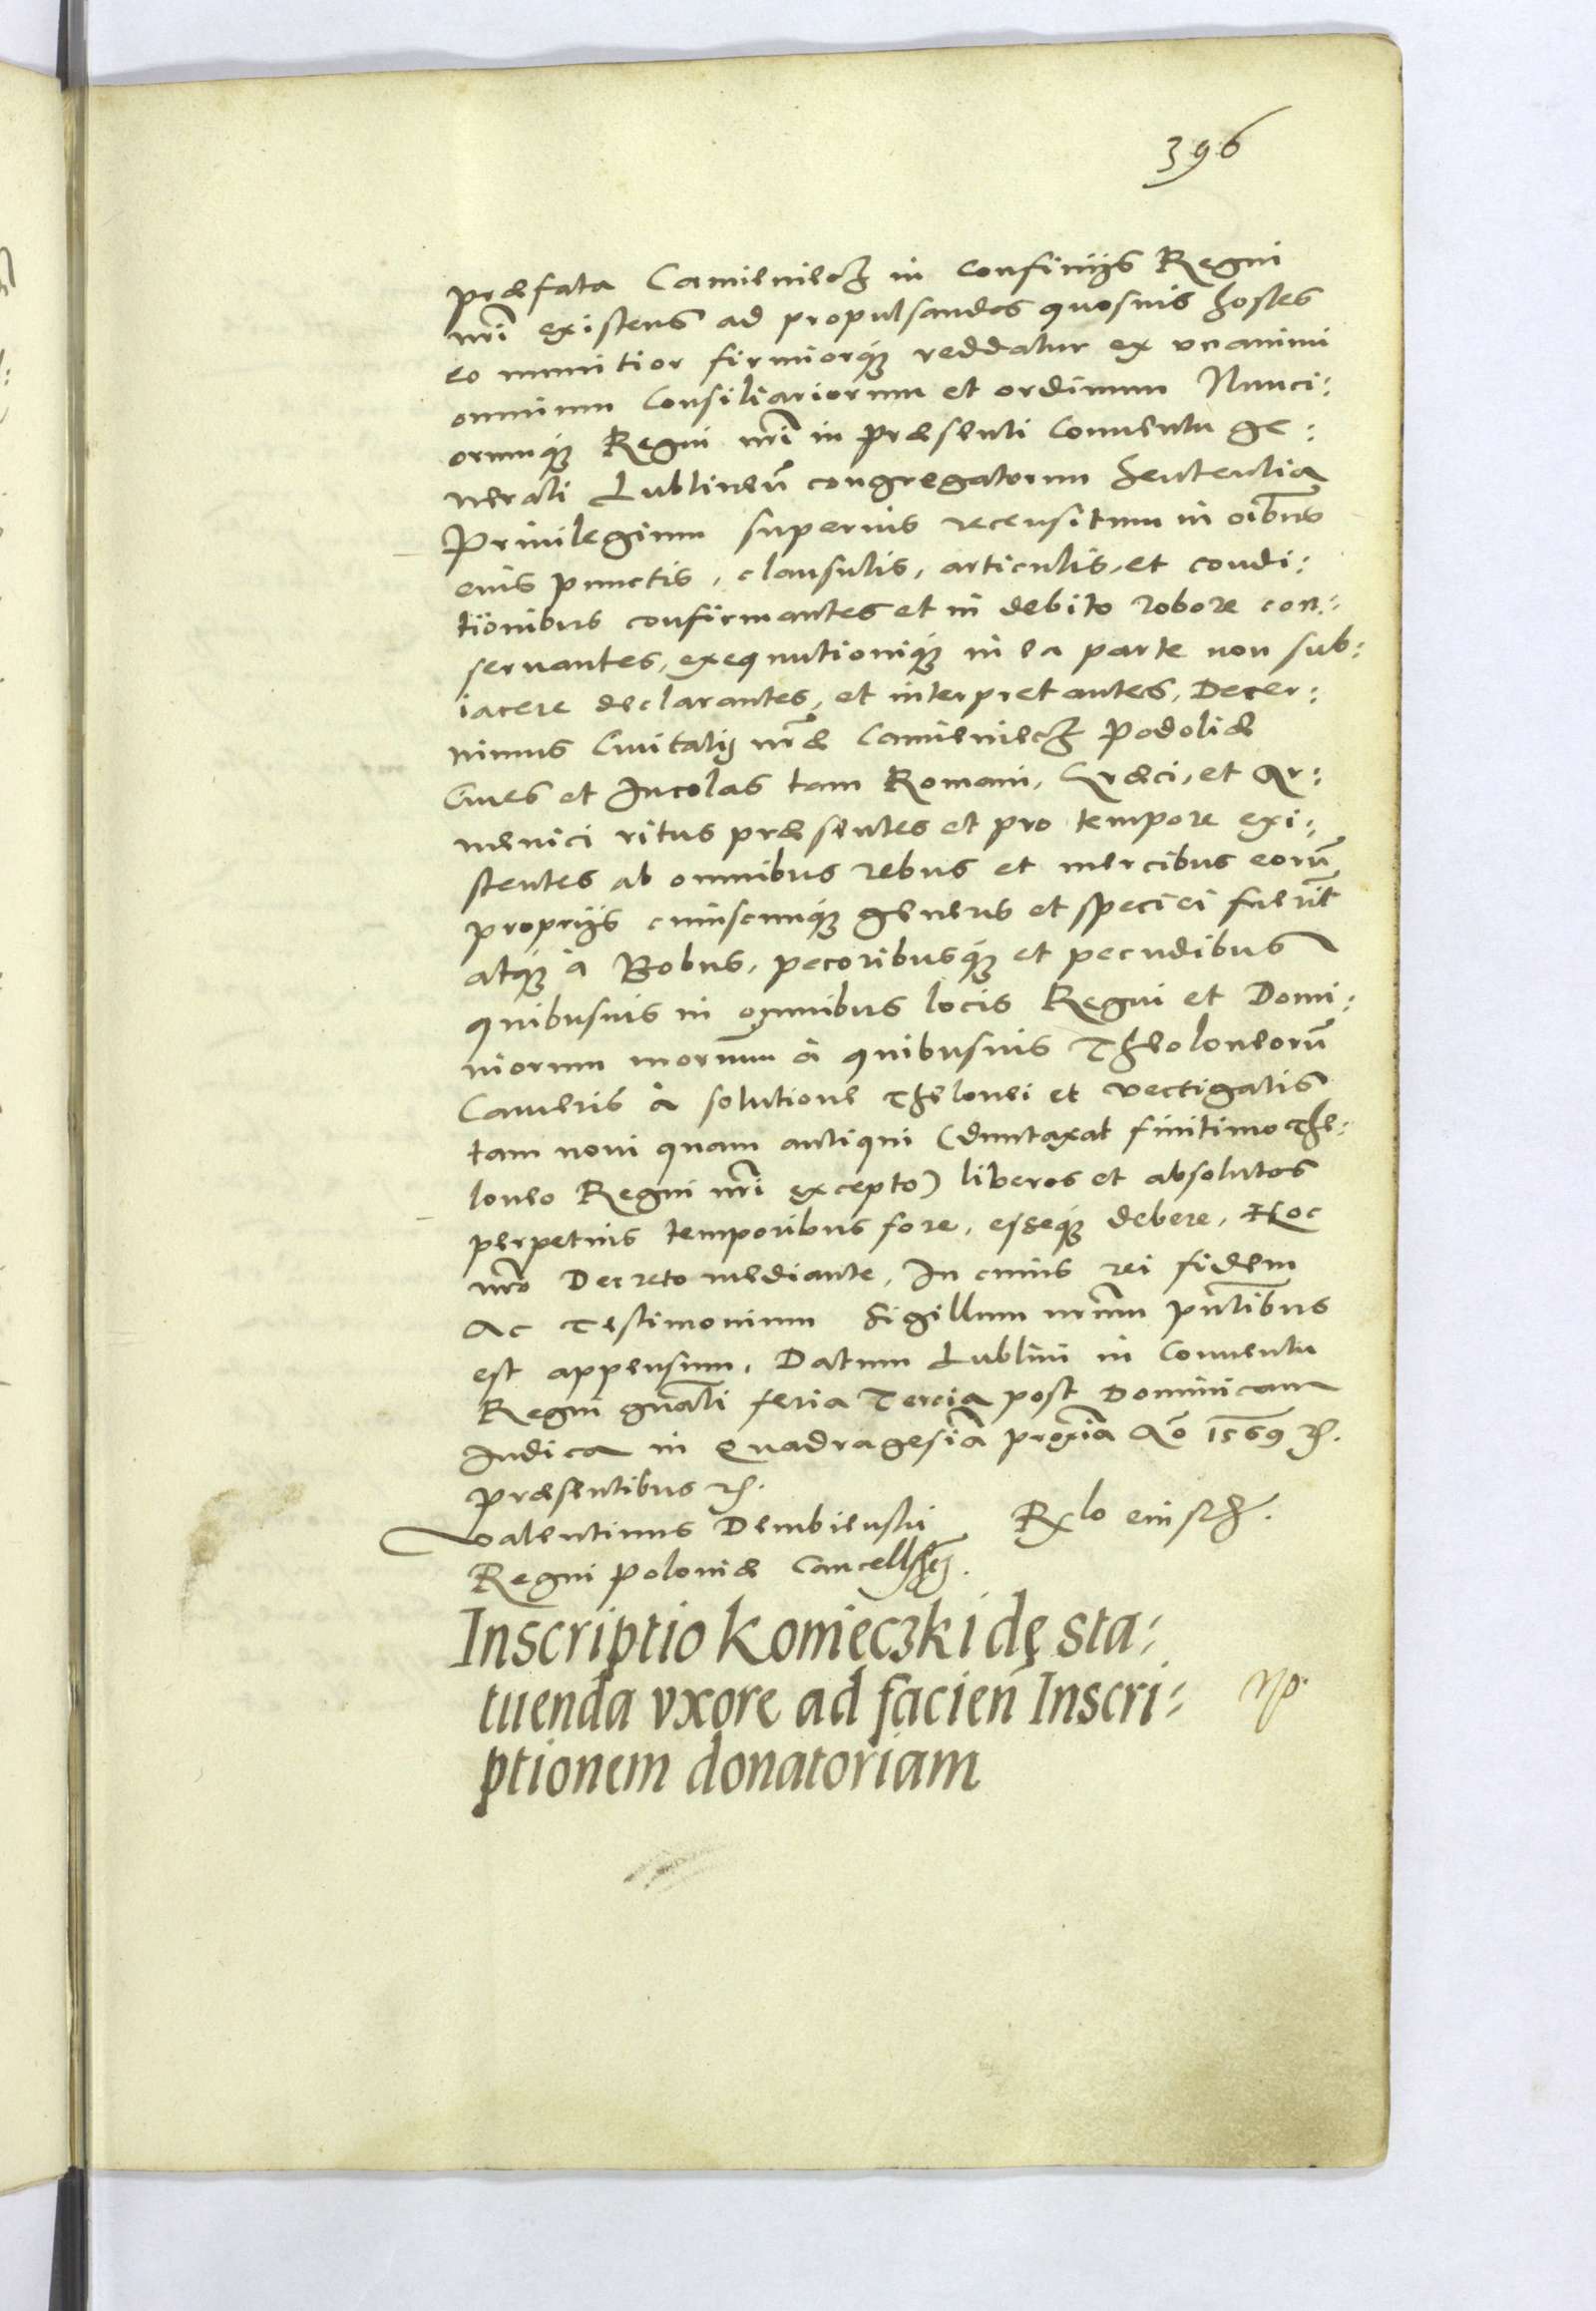 396
præfata Camieniecz in confinijs Regni
nr̃i existens ad propulsandos quosuis hostes
eo munitior firmiorq́ue reddatur ex vnanimi
omnium Consiliariorum et ordinum Nunci:
orumq́ue Regni nr̃i in præsenti Conuentu ge:
nerali Lublineñ congregatorum sententia
Priuilegium superius recensitum in oĩbus
eius punctis, clausulis, articulis, et condi:
tionibus confirmantes et in debito robore con:
seruantes, exequutioniq́ue in ea parte non sub:
iacere declarantes, et interpretantes, Decer:
nimus Ciuitatis nr̃æ Camieniecz Podoliæ
Ciues et Incolas tam Romani, Græci, et Ar:
menici ritus præsentes et pro tempore exi:
stentes ab omnibus rebus et mercibus eorũ
proprijs cuiuscunq́ue generis et speciei fuerĩt
atq́ue à Bobus, pecoribusq́ue et pecudibus
quibusuis in omnibus locis Regni et Domi:
niorum nrorum à quibusuis Theloneorũ
Cameris à solutione Thelonei et vectigalis
tam noui quam antiqui (duntaxat finitimo The:
loneo Regni nr̃i excepto) liberos et absolutos
perpetuis temporibus fore, esseq́ue debere, Hoc
nr̃o Decreto mediante, In cuius rei fidem
Ac Testimonium Sigillum nr̃um pñtibus
est appensum. Datum Lublini in Conuentu
Regni gñali feria Tercia post Dominicam
Iudica in Quadragesĩa proxĩa Aõ 1569 ꝛc.
Præsentibus ꝛc.
Valentinus Dembienski
Regni Poloniæ Cancell
Rlo eiusd.
Inscriptio Konieczki de sta:
tuenda vxore ad facień Inscri:
ptionem donatoriam